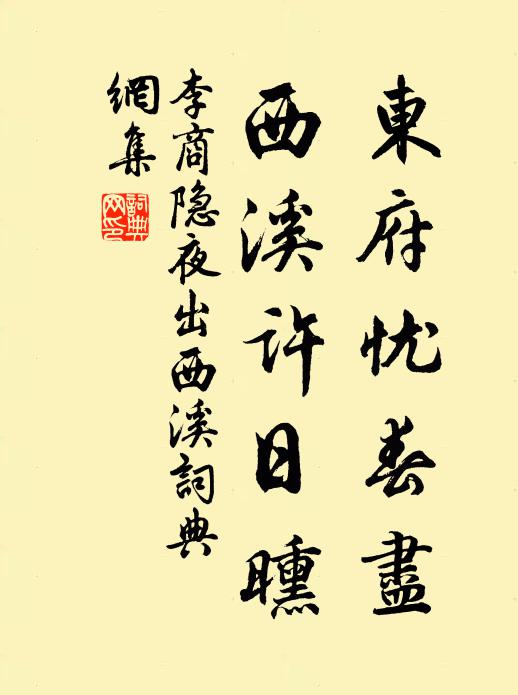 東府忧春盡
西溪許日曛
李商隐夜出西溪詞典
網集
詞典网印